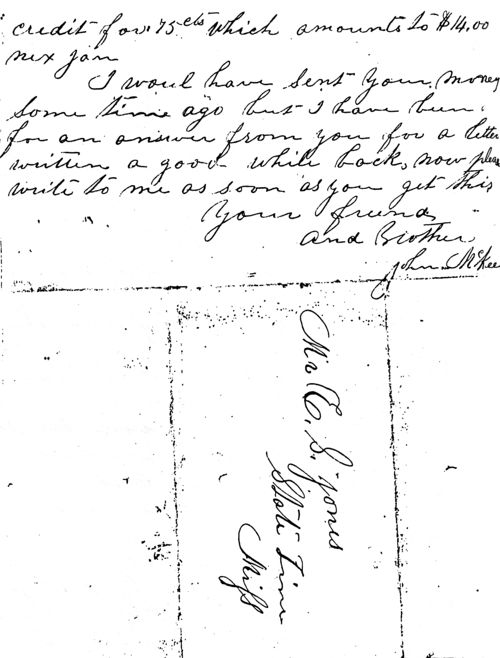 credit for 75 cts which amounts to $14.00
nex jan
I woul have sent your money
some time ago but I have bun
for an answer from you for a letter
written a good while back, now pleas
write to me as soon as you get this
Your friend
and Brother
John McKee
Mr C. S. Jones
State Line
Miss